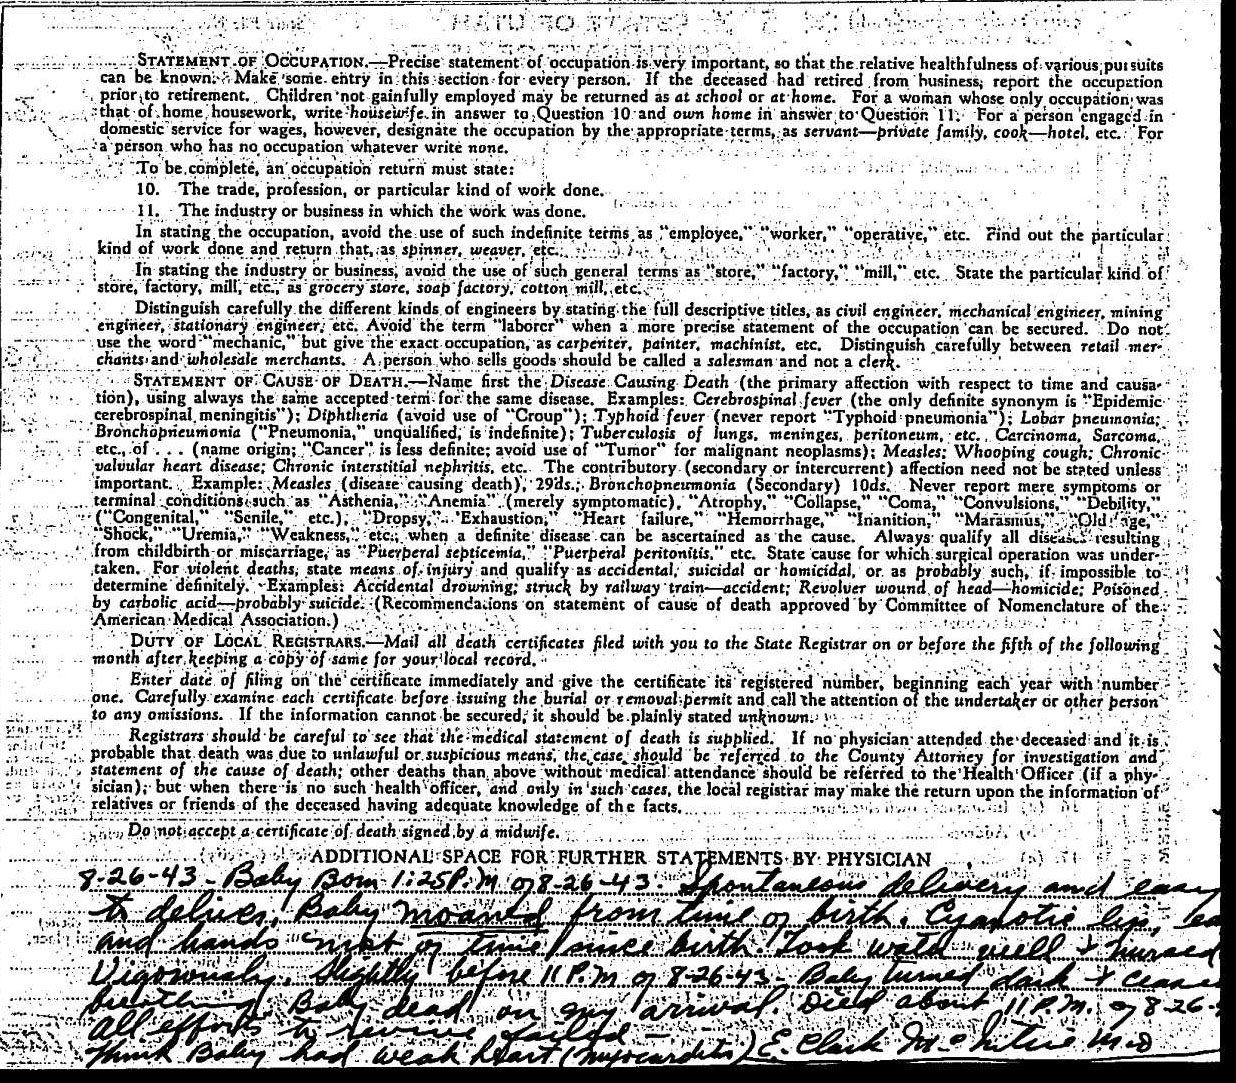 STATEMENT OF OCCUPATION.—Precise statement of occupation is very important, so that the relative healthfulness of various pursuits
can be known. Make some entry in this section for every person. If the deceased had retired from business, report the occupation
prior to retirement. Children not gainfully employed may be returned as at school or at home. For a woman whose only occupation was
that of home housework, write housewife in answer to Question 10 and own home in answer to Question 11. For a person engaged in
domestic service for wages, however, designate the occupation by the appropriate terms, as servant—private family, cook—hotel, etc. For
a person who has no occupation whatever write none.
To be complete, an occupation return must state:
10. The trade, profession, or particular kind of work done.
11. The industry or business in which the work was done.
In stating the occupation, avoid the use of such indefinite terms as "employee," "worker," "operative," etc. Find out the particular
kind of work done and return that, as spinner, weaver, etc.
In stating the industry or business, avoid the use of such general terms as "store," "factory," "mill," etc. State the particular kind of
store, factory, mill, etc., as grocery store, soap factory, cotton mill, etc.
Distinguish carefully the different kinds of engineers by stating the full descriptive titles, as civil engineer, mechanical engineer, mining
engineer, stationary engineer, etc. Avoid the term "laborer" when a more precise statement of the occupation can be secured. Do not
use the word "mechanic," but give the exact occupation, as carpenter, painter, machinist, etc. Distinguish carefully between retail mer-
chants and wholesale merchants. A person who sells goods should be called a salesman and not a clerk.
STATEMENT OF CAUSE OF DEATH.—Name first the Disease Causing Death (the primary affection with respect to time and causa-
tion), using always the same accepted term for the same disease. Examples: Cerebrospinal fever (the only definite synonym is "Epidemic
cerebrospinal meningitis"); Diphtheria (avoid use of "Croup"); Typhoid fever (never report "Typhoid pneumonia"); Lobar pneumonia;
Bronchopneumonia ("Pneumonia," unqualified, is indefinite); Tuberculosis of lungs, meninges, peritoneum, etc., Carcinoma, Sarcoma,
etc., of . . . (name origin; "Cancer" is less definite; avoid use of "Tumor" for malignant neoplasms); Measles; Whooping cough; Chronic
valvular heart disease; Chronic interstitial nephritis, etc. The contributory (secondary or intercurrent) affection need not be stated unless
important. Example: Measles (disease causing death), 29ds.; Bronchopneumonia (Secondary) 10ds. Never report mere symptoms or
terminal conditions such as "Asthenia," "Anemia" (merely symptomatic), "Atrophy," "Collapse," "Coma," "Convulsions," "Debility,"
("Congenital," "Senile," etc.), "Dropsy," "Exhaustion," "Heart failure," "Hemorrhage," "Inanition," "Marasmus," "Old age,"
"Shock," "Uremia," "Weakness," etc., when a definite disease can be ascertained as the cause. Always qualify all diseases resulting
from childbirth or miscarriage, as "Puerperal septicemia," "Puerperal peritonitis," etc. State cause for which surgical operation was under-
taken. For violent deaths, state means of injury and qualify as accidental, suicidal or homicidal, or as probably such, if impossible to
determine definitely. Examples: Accidental drowning; struck by railway train—accident; Revolver wound of head—homicide; Poisoned
by carbolic acid—probably suicide. (Recommendations on statement of cause of death approved by Committee of Nomenclature of the
American Medical Association.)
DUTY OF LOCAL REGISTRARS.—Mail all death certificates filed with you to the State Registrar on or before the fifth of the following
month after keeping a copy of same for your local record.
Enter date of filing on the certificate immediately and give the certificate its registered number, beginning each year with number
one. Carefully examine each certificate before issuing the burial or removal permit and call the attention of the undertaker or other person
to any omissions. If the information cannot be secured, it should be plainly stated unknown.
Registrars should be careful to see that the medical statement of death is supplied. If no physician attended the deceased and it is
probable that death was due to unlawful or suspicious means, the case should be referred to the County Attorney for investigation and
statement of the cause of death; other deaths than above without medical attendance should be referred to the Health Officer (if a phy-
sician); but when there is no such health officer, and only in such cases, the local registrar may make the return upon the information of
relatives or friends of the deceased having adequate knowledge of the facts.
Do not accept a certificate of death signed by a midwife.
ADDITIONAL SPACE FOR FURTHER STATEMENTS BY PHYSICIAN
8-26-43 - Baby Born 1:25 P.M of 8-26-43. Spontaneous delivery and easy
to deliver. Baby moaned from time of birth. Cyanotic lips,
and hands most of time since birth. Took water well & nursed
Vigorously. Slightly before 11 P.M of 8-26-43 - Baby turned dark & cease
breathing. Baby dead on my arrival. Died about 11 P.M. of 8-26-
All efforts to revive failed —
Think Baby had weak heart (myocarditis) E. Clark McIntire MD